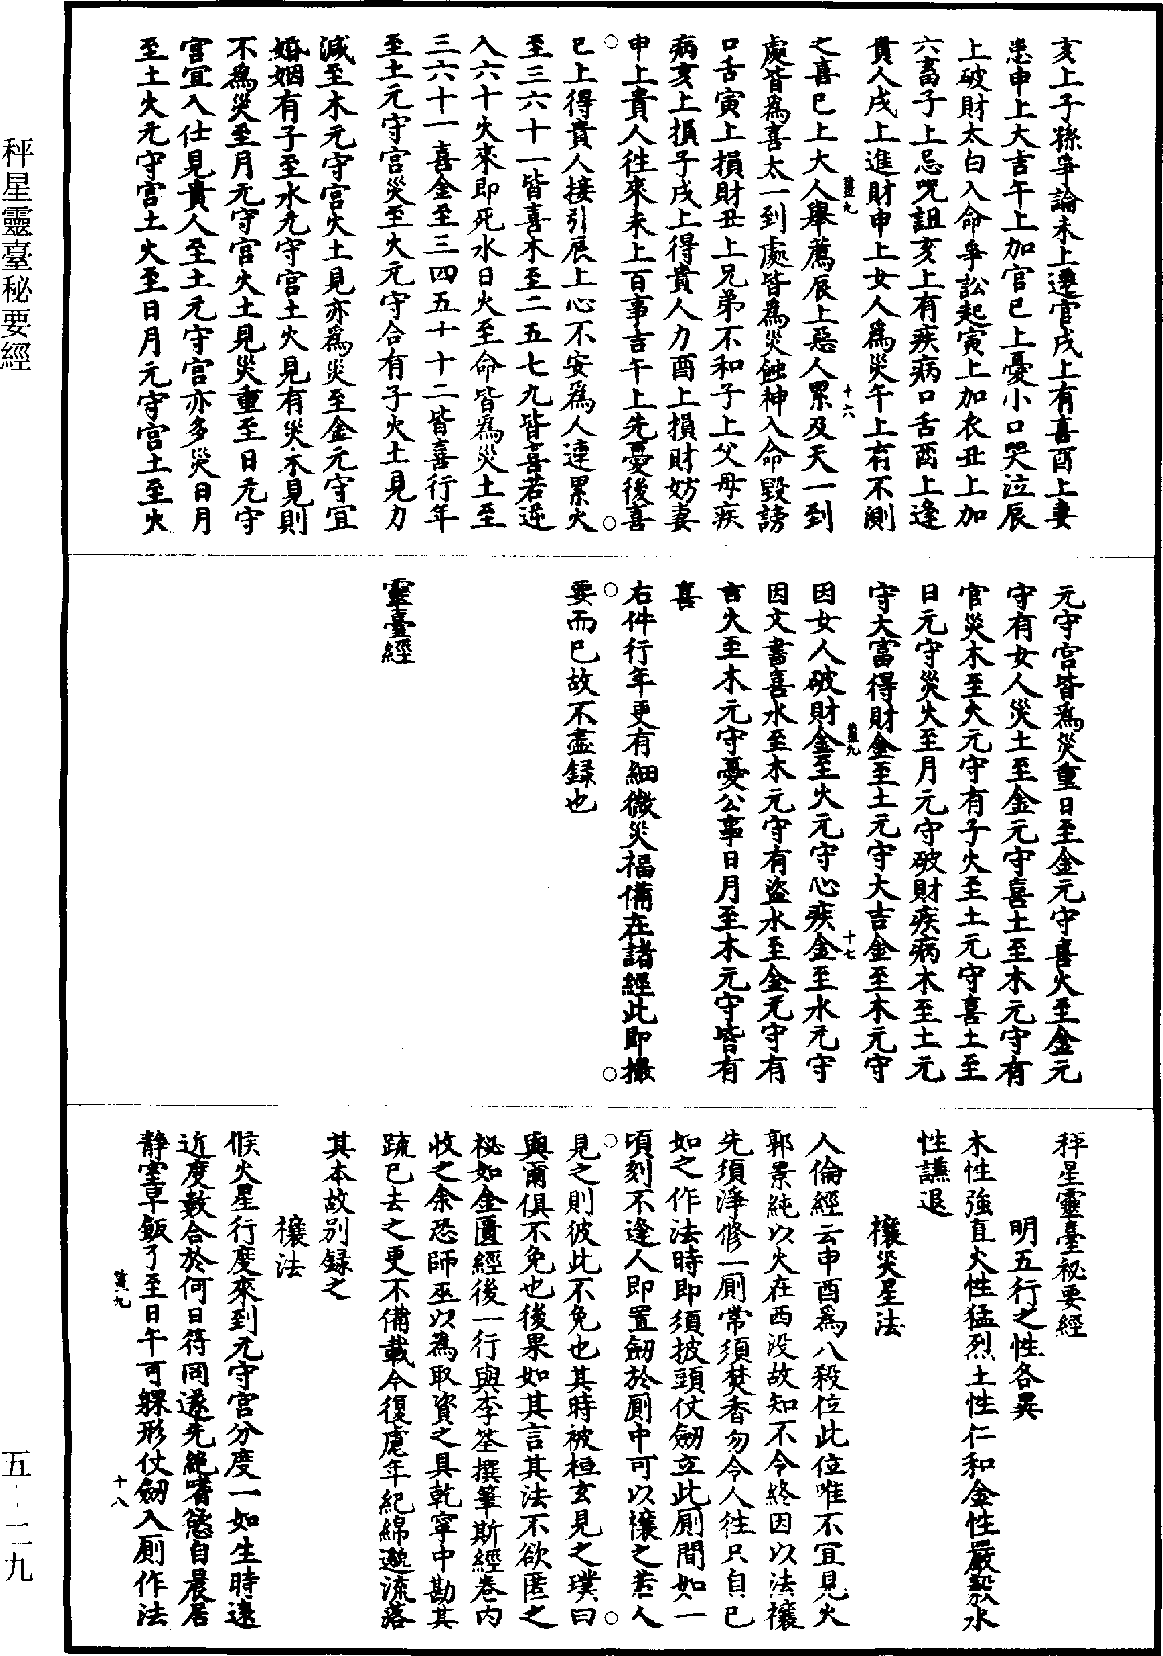 亥上子孫爭論未上遷官戌上有喜酉上妻
患申上大吉午上加官巳上憂小口哭泣辰
上破財太白入命爭訟起寅上加衣丑上加
六畜子上忌咒詛亥上有疾病口舌酉上逢
貴人戌上進財申上女人為災午上有不測
之喜巳上大人舉薦辰上惡人累及天一到
處皆為喜太一到處皆為災蝕神入命毀謗
口舌寅上損財丑上兄弟不和子上父母疾
病亥上損子戌上得貴人力酉上損財妨妻
申上貴人往來未上百事吉午上先憂後喜
巳上得貴人接引辰上心不安為人連累火
至三六十一皆喜木至二五七九皆喜若逆
入六十火來即死水日火至命皆為災土至
三六十一喜金至三四五十十二皆喜行年
至土元守宮災至火元守合有子火土見力
減至木元守宮火土見亦為災至金元守宜
婚姻有子至水元守宮土火見有災不見則
不為災至月元守宮火土見災重至日元守
宮宜入仕見貴人至土元守宮亦多災日月
至土火元守宮土火至日月元守宮土至火
元守宮皆為災重日至金元守喜火至金元
守有女人災土至金元守喜土至木元守有
官災木至火元守有子火至土元守喜土至
日元守災火至月元守破財疾病木至土元
守大富得財金至土元守大吉金至木元守
因女人破財金至火元守心疾金至水元守
因文書喜水至木元守有盜水至金元守有
言火至木元守憂公事日月至木元守皆有
喜
右件行年更有細微災福備在諸經此即撮
要而已故不盡錄也
靈臺經
秤星靈臺祕要經
明五行之性各異
木性強直火性猛烈土性仁和金性嚴毅水
性謙退
禳災星法
人倫經云申酉為八殺位此位唯不宜見火
郭景純以火在西沒故知不令終因以法禳
先須淨修一廁常須焚香勿令人往只自已
如之作法時即須披頭仗劒立此廁間如一
頃刻不逢人即置劒於廁中可以禳之若人
見之則彼此不免也其時被桓玄見之璞曰
與爾俱不免也後果如其言其法不欲匿之
祕如金匱經後一行與李筌撰筆斯經卷內
收之余恐師巫以為取資之具乾寧中勘其
疏已去之更不備載今復慮年紀綿邈流落
其本故別錄之
禳法
候火星行度來到元守宮分度一如生時遠
近度數合於何日符同遂先絕嗜慾自晨居
靜室草飯了至日午可躶形仗劒入廁作法
薑九
十六
薑九
十七
薑九
十八
秤星靈臺秘要經
五‧二九